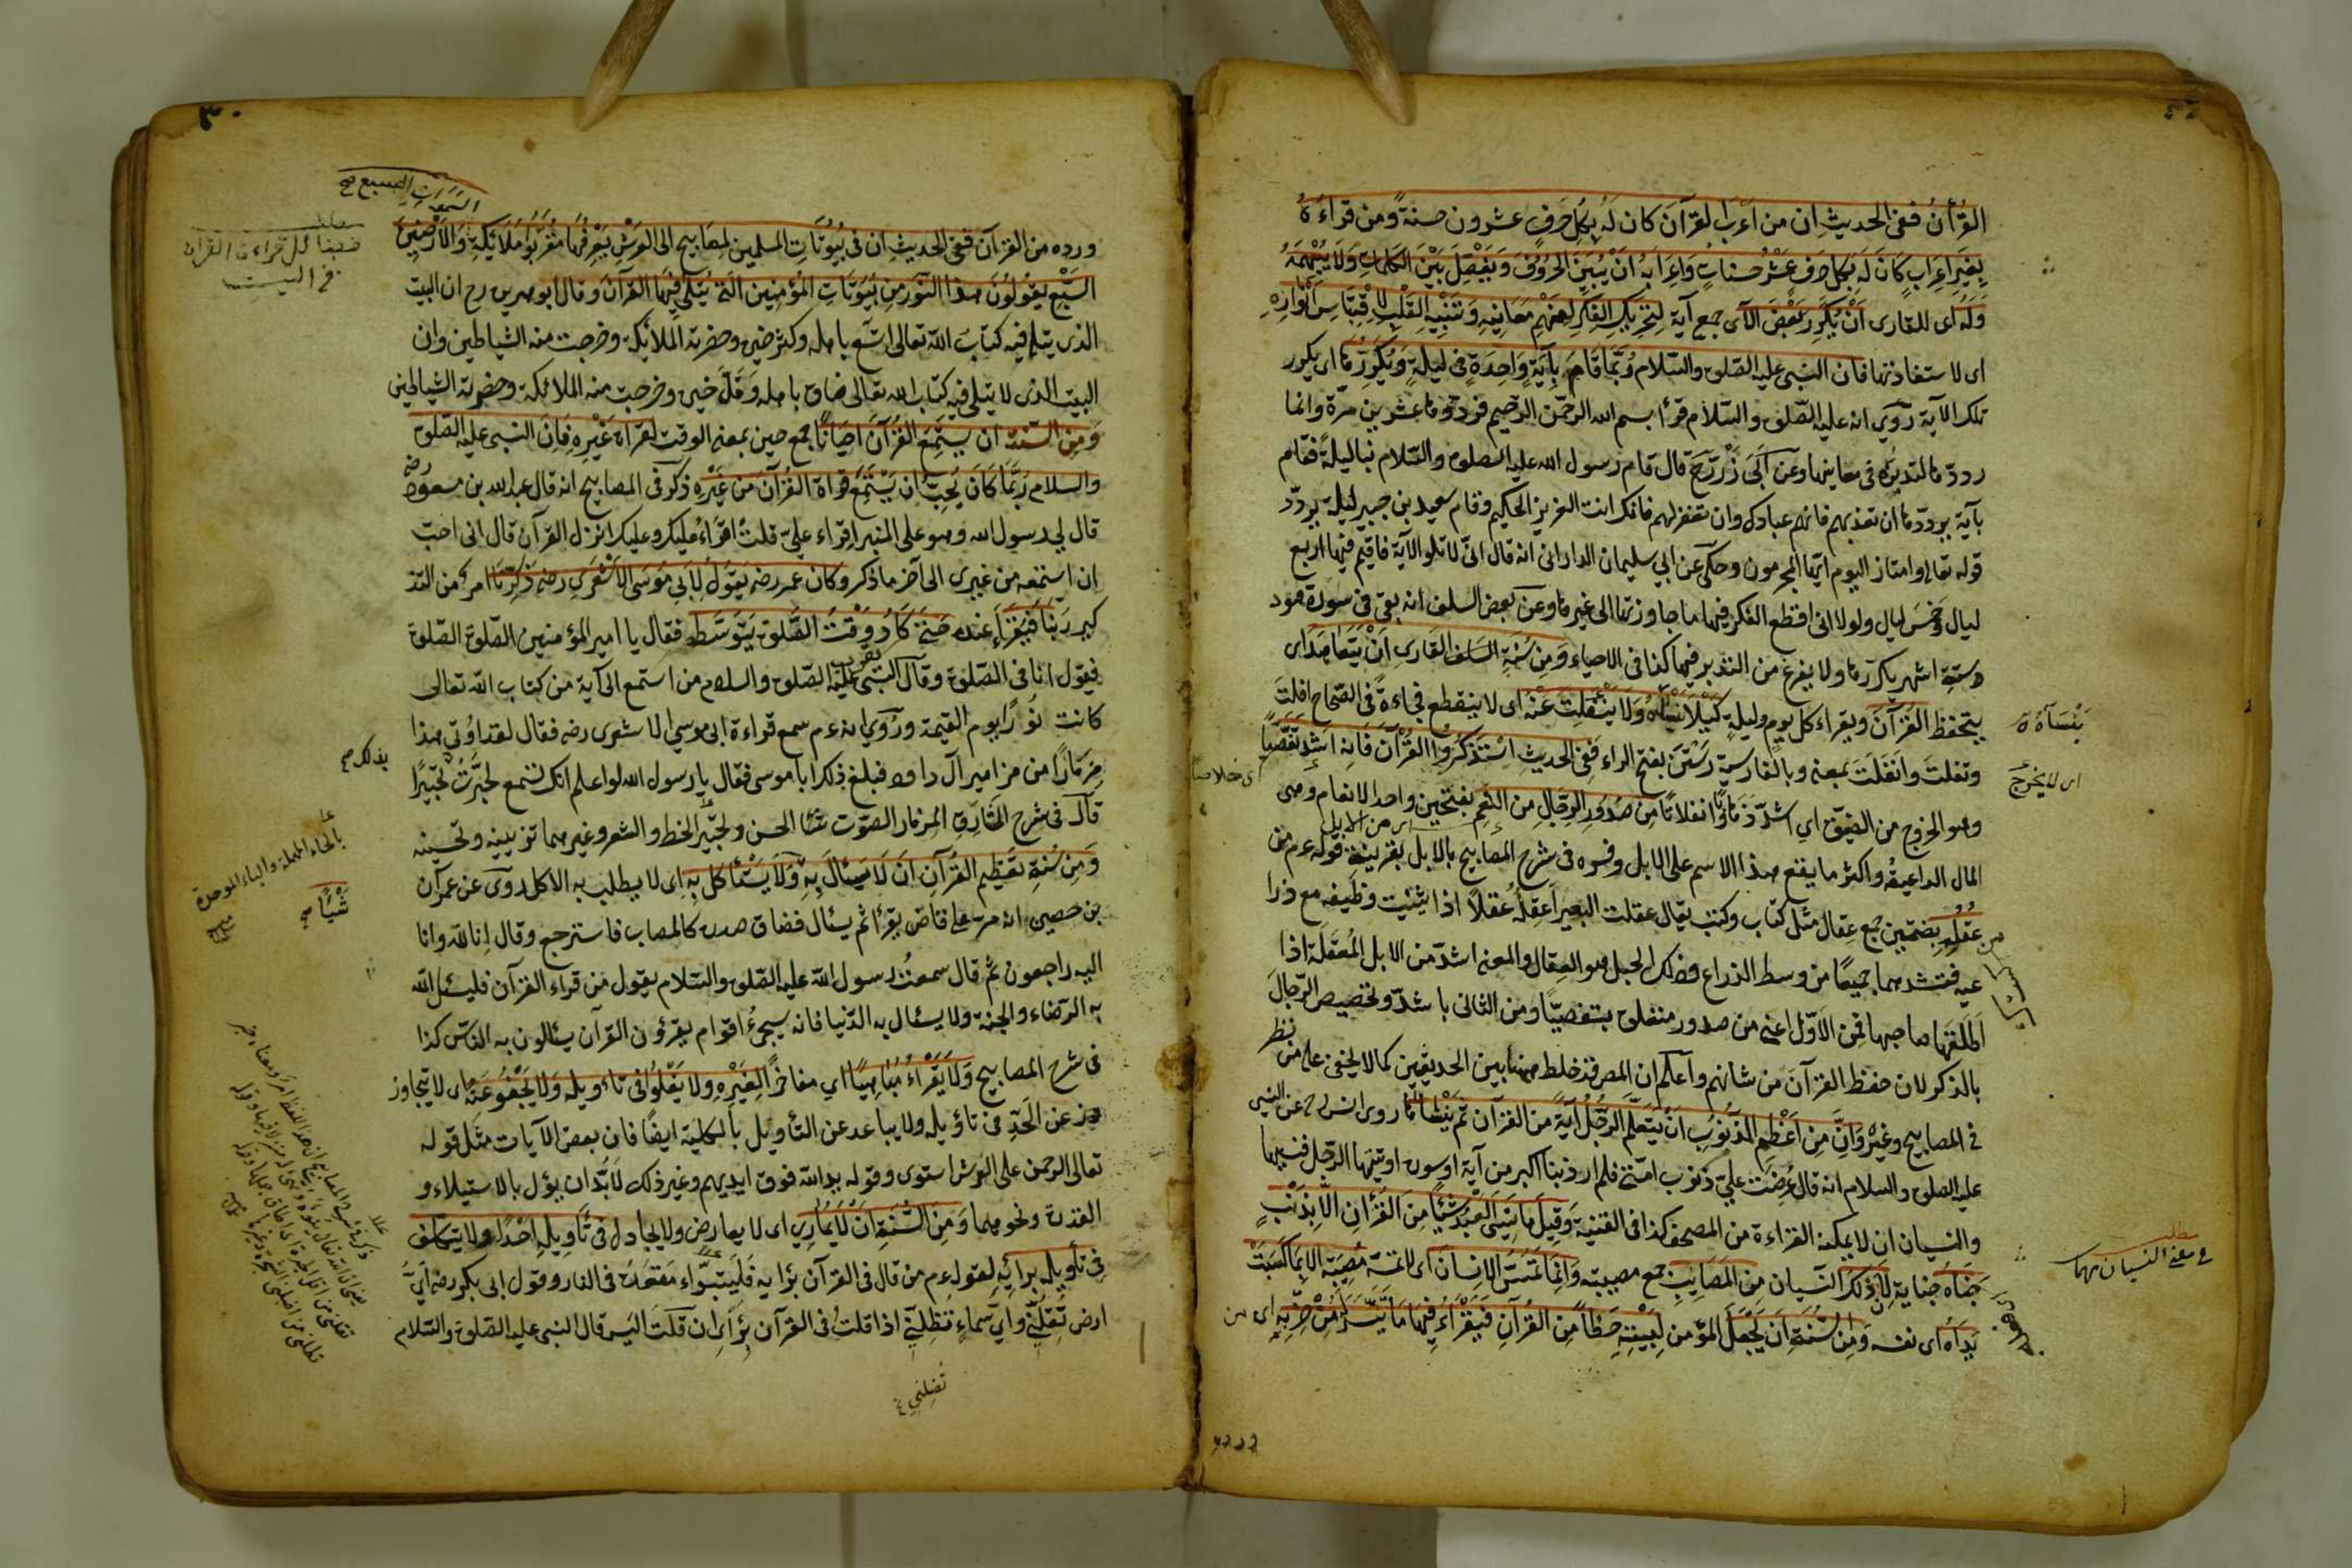 القرآن ففى الحديث ان من اعرب القرآن كان له بكل حرف عشرون حسنة ومن قراءه
بغير اعراب كان له بكل حرف عشر حسنات واعرابه ان يبين الحروف ويفصل بين الكلمات ولا
وله اى للقارى ان يكرر بعض الآى جمع آية لتحريك الفكر لفهم معانيه وتنبيه القلب لاقتباس انواره
اى لاستفادتها فان النبى عليه الصلوة والسلام ربما قام بآية واحدة فى ليلة ويكررها اى يكرر
تلك الآية روى انه عليه الصلوة والسلام قرأ بسم الله الرحمن الرحيم فرددها عشرين مرة وانما
رددها لتدبره فى معانيها وعن ابى ذر رح قال قام رسول الله عليه الصلوة والسلام بنا ليلة فقام
بآية يرددها ان تعذبهم فانهم عبادك وان تغفر لهم فانك انت العزيز الحكيم وقام سعيد بن جبير ليلة يردد
قوله تعالى وامتازوا اليوم ايها المجرمون وحكى عن ابى سليمان الدارانى انه قال انى لا تلو الآية فاقيم فيها اربع
ليال وخمس ليال ولولا انى اقطع الفكر فيها ما جاوزتها الى غيرها وعن بعض السلف انه بقى فى سورة هود
ستة اشهر يكررها ولا يفرغ من التدبر فيها كذا فى الاحياء ومن سنة السلف القارى ان يتعاهد اى
يتحفظ القرآن ويقراء كل يوم وليلة كيلا ينساه ولا ينفلت عنه اى لا ينقطع فجاءة فى الصحاح افلت
وتفلت وانفلت بمعنى وبالفارسية رستن بفتح الراء ففى الحديث استذكروا القرآن فانه اشد تفصيا
وهو الخروج من الضيق اى اشد ذهابا وانفلاتا من صدور الرجال من النعم بفتحتين واحد الانعام وهى
المال الراعية واكثر ما يقع هذا الاسم على الابل وفسره فى شرح المصابيح بالابل بقرينة قوله عم من
عقله بضمتين جمع عقال مثل كتاب وكتب يقال عقلت البعير اعقله عقلا اذا ثنيت وظيفه مع ذرا
عيه فتشدهما جميعا من وسط الذراع وذلك الحبل هو العقال والمعنى اشد من الابل المعقلة اذا
اطلقها صاحبها فمن الاول اعنى من صدور متعلق بتفصيا ومن الثانى باشد وتخصيص الرجال
بالذكر لان حفظ القرآن من شانهم واعلم ان المص قد خلط ههنا بين الحديثين كما لا يخفى على من نظر
فى المصابيح وغيره وان من اعظم الذنوب ان يتعلم الرجل آية من القرآن ثم ينساها لما روى انس رح عن النبى
عليه الصلوة والسلام انه قال عرضت على ذنوب امتى فلم ار ذنبا اكبر من آية او سورة اوتيها الرجل فنسيها
والنسيان ان لا يمكنه القراءة من المصحف كذا فى القنية وقيل ما نسى العبد شيئا من القرآن الا بذنب
جناه جناية لان ذلك النسيان من المصايب جمع مصيبة وانما تمس الانسان اى لا تمسه مصيبة الا بما كسبت
يداه اى نفسه ومن السنة ان يجعل المؤمن لبيته حظا من القرآن فيقراء فيها ما تيسر له من حزبه اى من
اى لا يخرج
مطلب
فى معنى النسيان
٣٠
السموات السبع صح
ورده من القرآن ففى الحديث ان فى بيوتات المسلمين لمصابيح الى العرش يعرفها مقربوا ملائكة والارضين
السبع يقولون هذا النور من بيوتات المؤمنين التى يتلى فيها القرآن وقال ابو هريرة رح ان البيت
الذى يتلى فيه كتاب الله تعالى اتسع باهله وكثر خيره وحضرته الملائكة وخرجت منه الشياطين وان
البيت الذى لا يتلى فيه كتاب الله تعالى ضاق باهله وقل خيره وخرجت منه الملائكة وحضرته الشياطين
ومن السنة ان يستمع القرآن احيانا جمع حين بمعنى الوقت لقراة غيره فان النبى عليه الصلوة
والسلام ربما كان يحب ان يستمع قراة القرآن من غيره ذكر فى المصابيح انه قال عبد الله بن مسعود رضه
قال لى رسول الله وهو على المنبر اقراء على قلت اقراء عليك وعليك انزل القرآن قال انى احب
ان استمعه من غيرى الى آخر ما ذكر وكان عمر رضه يقول لابى موسى الاشعرى رضه ذكرنا امر من التذ
كير ربنا فيقراء عنده حتى كاد وقت الصلوة يتوسط فقال يا امير المؤمنين الصلوة الصلوة
فيقول انا فى الصلوة وقال النبى عليه الصلوة والسلام من استمع الى آية من كتاب الله تعالى
كانت نورا يوم القيمة وروى انه عم سمع قراءة ابى موسى الاشعرى رضه فقال لقد اوتى هذا
مزمارا من مزامير آل داود فبلغ ذلك ابا موسى فقال يا رسول الله لو اعلم انك تستمع لحبرت تحبيرا
قال فى شرح المشارق المزمار الصوت الحسن وتحبير الخط والشعر وغيرهما تزيينه وتحسينه
ومن سنة تعظيم القرآن ان لا يسئال به ولا يستأكل به اى لا يطلب به الاكل روى عن عمران
بن حصين انه مر على قاص يقرأ ثم يسئال فضاق صدره كالمصاب فاسترجع وقال انا لله وانا
اليه راجعون ثم قال سمعت رسول الله عليه الصلوة والسلام يقول من قراء القرآن فليسئل الله
به الرضاء والجنة ولا يسئال به الدنيا فانه سيجئ اقوام يقرؤن القرآن يسئالون به الناس كذا
فى شرح المصابيح ولا يقراء مباهيا اى مفاخرا لغيره ولا يغلوا فى تاويله ولا يجفو عنه اى لا يتجاوز
عن الحد فى تاؤيله ولا يباعد عن التأويل بالكلية ايضا فان بعض الآيات مثل قوله
تعالى الرحمن على العرش استوى وقوله يد الله فوق ايديهم وغير ذلك لابد ان يؤل بالاستيلاء و
القدرة ونحوهما ومن السنة ان لا يمارى اى لا يعارض ولا يجادل فى تأويله احدا ولا يتكلف
فى تأويله برائه لقوله عم من قال فى القرآن برايه فليتبواء مقعده فى النار وقول ابى بكر رضه اى
ارض تقلنى واى سماء تظلنى اذا قلت فى القرآن برأيى ان قلت اليس قال النبى عليه الصلوة والسلام
مطلب
فى البيت
بذلك صح
بالحاء المهملة والباء الموحدة
شيئا صح